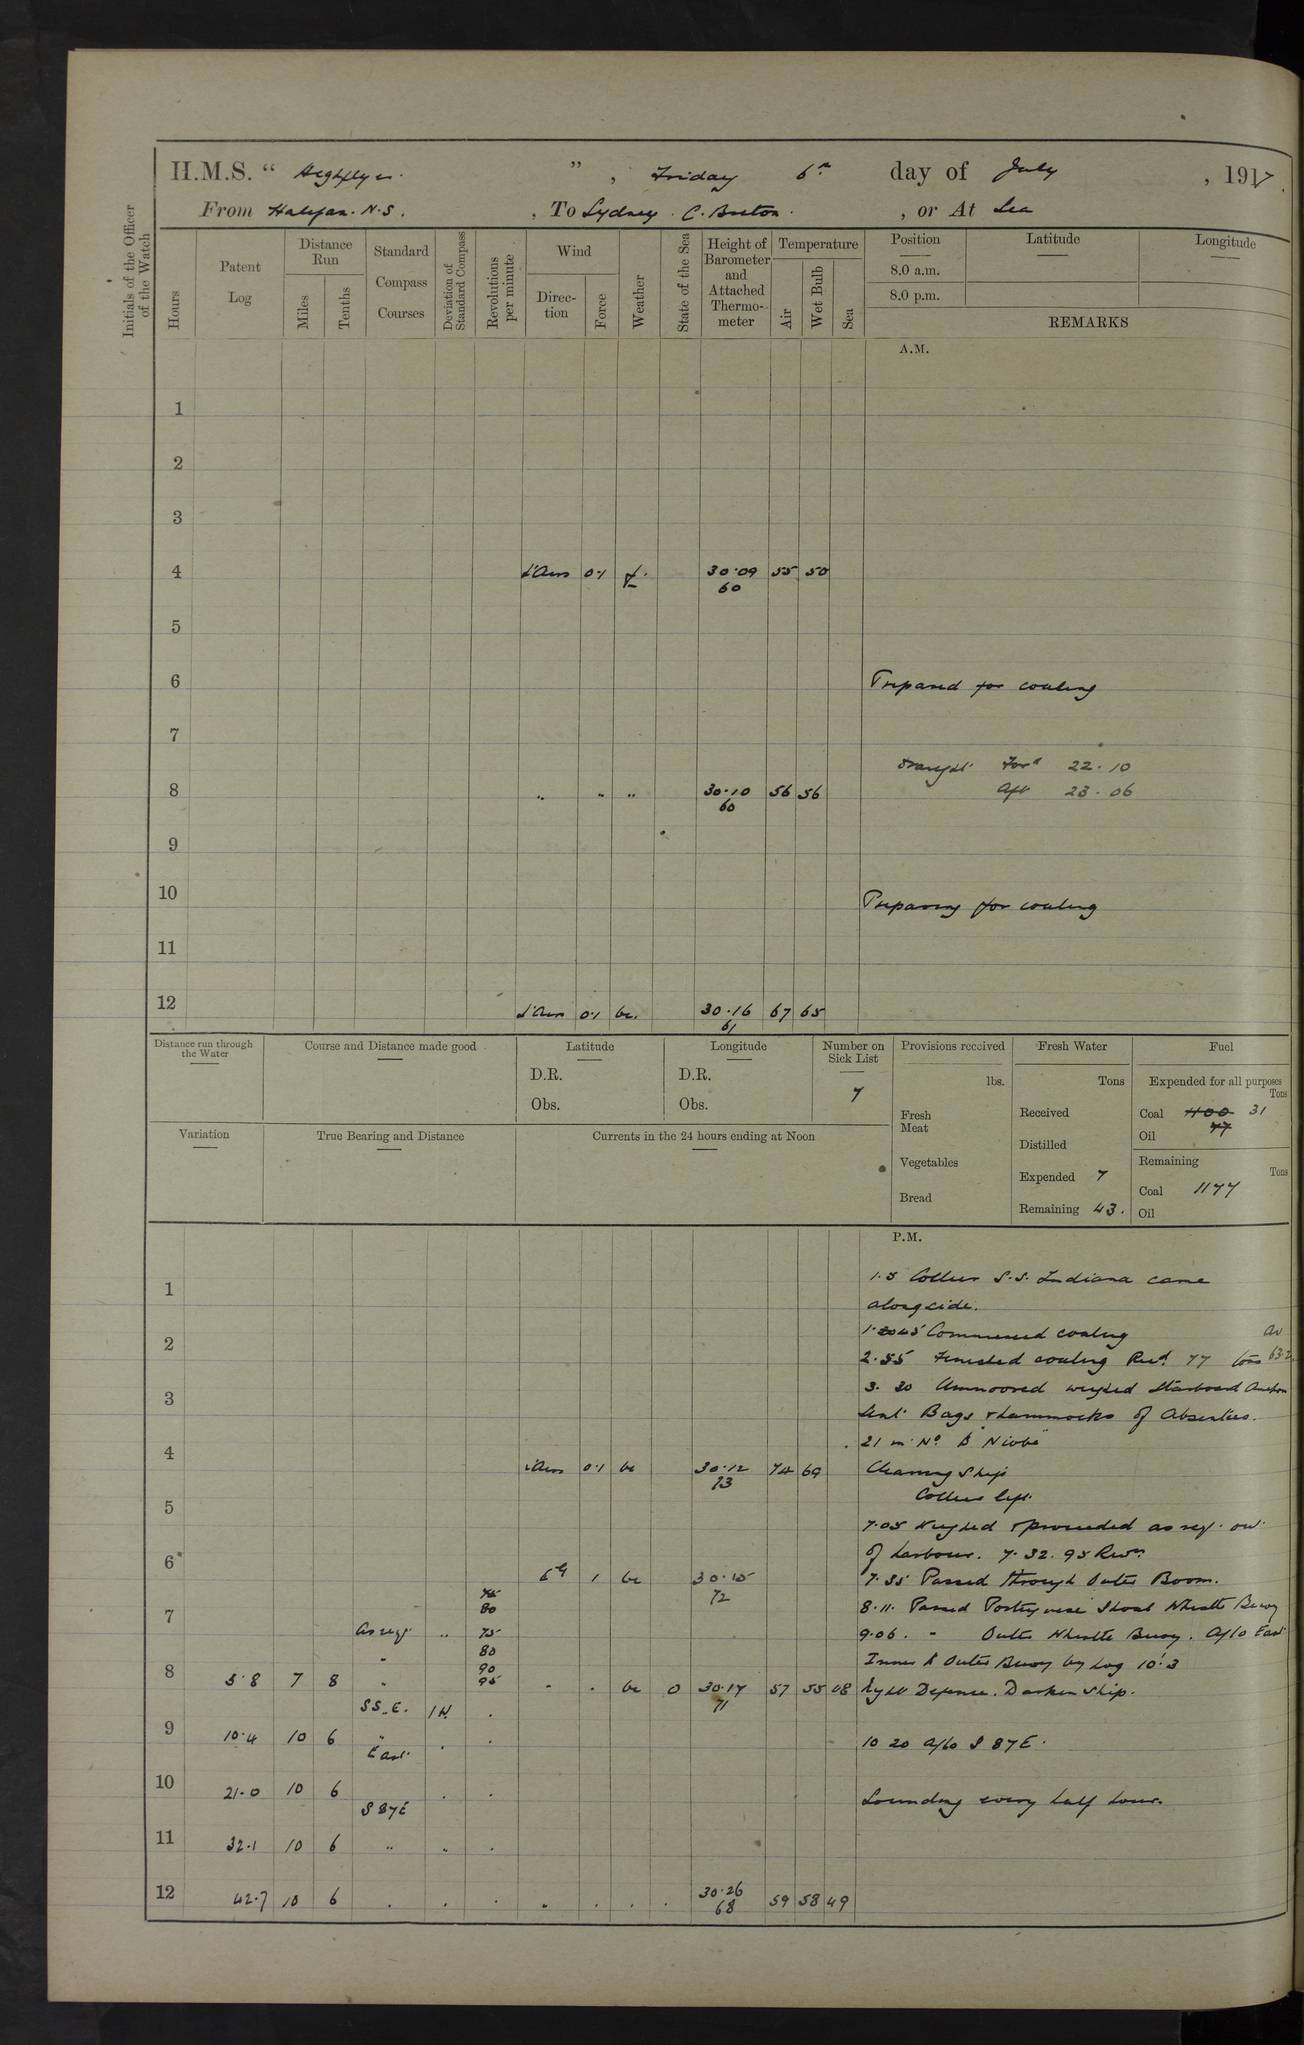 H.M.S. " Highflyer. ", Friday 6th day of July, 1917.
From Halifax. N.S., To Sydney. C. Breton., or At Sea
Initials of the Officer of the Watch
Hours
Patent Log
Distance Run
Miles
Tenths
Standard Compass Courses
Deviation of Standard Compass
Revolutions per minute
Wind
Direction
Force
Weather
State of the Sea
Height of Barometer and Attached Thermometer
Temperature
Air
Wet Bulb
Sea
Position Latitude Longitude
8.0 a.m.
8.0 p.m.
REMARKS
A.M.
1
2
3
4 L'Airs 0.1 f. 30.09 55 50
60
5
6 Prepared for coaling
7
Draught Ford 22.10
8 " " " 30.10 56 56 Aft 23.06
60
9
10 Preparing for coaling
11
12 L'Airs 0.1 bc. 30.16 67 65
61
Distance run through the Water
Course and Distance made good
Latitude
D.R.
Obs.
Longitude
D.R.
Obs.
Number on Sick List
7
Provisions received
lbs.
Fresh Meat
Vegetables
Bread
Fresh Water
Tons
Received
Distilled
Expended 7
Remaining 43.
Fuel
Expended for all purposes
Tons
Coal 1100 31
Oil 77
Remaining
Tons
Coal 1177
Oil
Variation
True Bearing and Distance
Currents in the 24 hours ending at Noon
P.M.
1 1.5 Collier S.S. Indiana came
alongside.
2 1.45 Commenced coaling av
2.55 Finished coaling Recd. 77 tons 63.2
3 3.30 Unmoored weighed Starboard Anchor
Sent Bags & hammocks of Absentees.
4 21 in No. to "Niobe"
L'Airs 0.1 bc 30.12 74 69 Cleaning Ship
73
Collier left.
5 7.05 Weighed & proceeded as req. out
of harbour. 7.32. 95 Revs.
6 1 bc 30.15 7.35 Passed through Outer Boom.
72
75
80 8.11. Passed Portuguese Shoal Whistle Buoy
7 As req. " 75 9.06. " Outer Whistle Buoy. A/co East
80
" 90 Inner to Outer Buoy by Log 10'.3
8 5.8 7 8 " 95 " . bc 0 30.17 57 55 48 Defence. Darken Ship.
71
SS.E. 1W. .
9 10.4 10 6 " . . 10 20 A/co S 87E.
East
10 21.0 10 6 . . Sounding every half hour.
S 87E
11 32.1 10 6 " " .
12 42.7 10 6 . . . . . . . 30.26 59 58 49
68